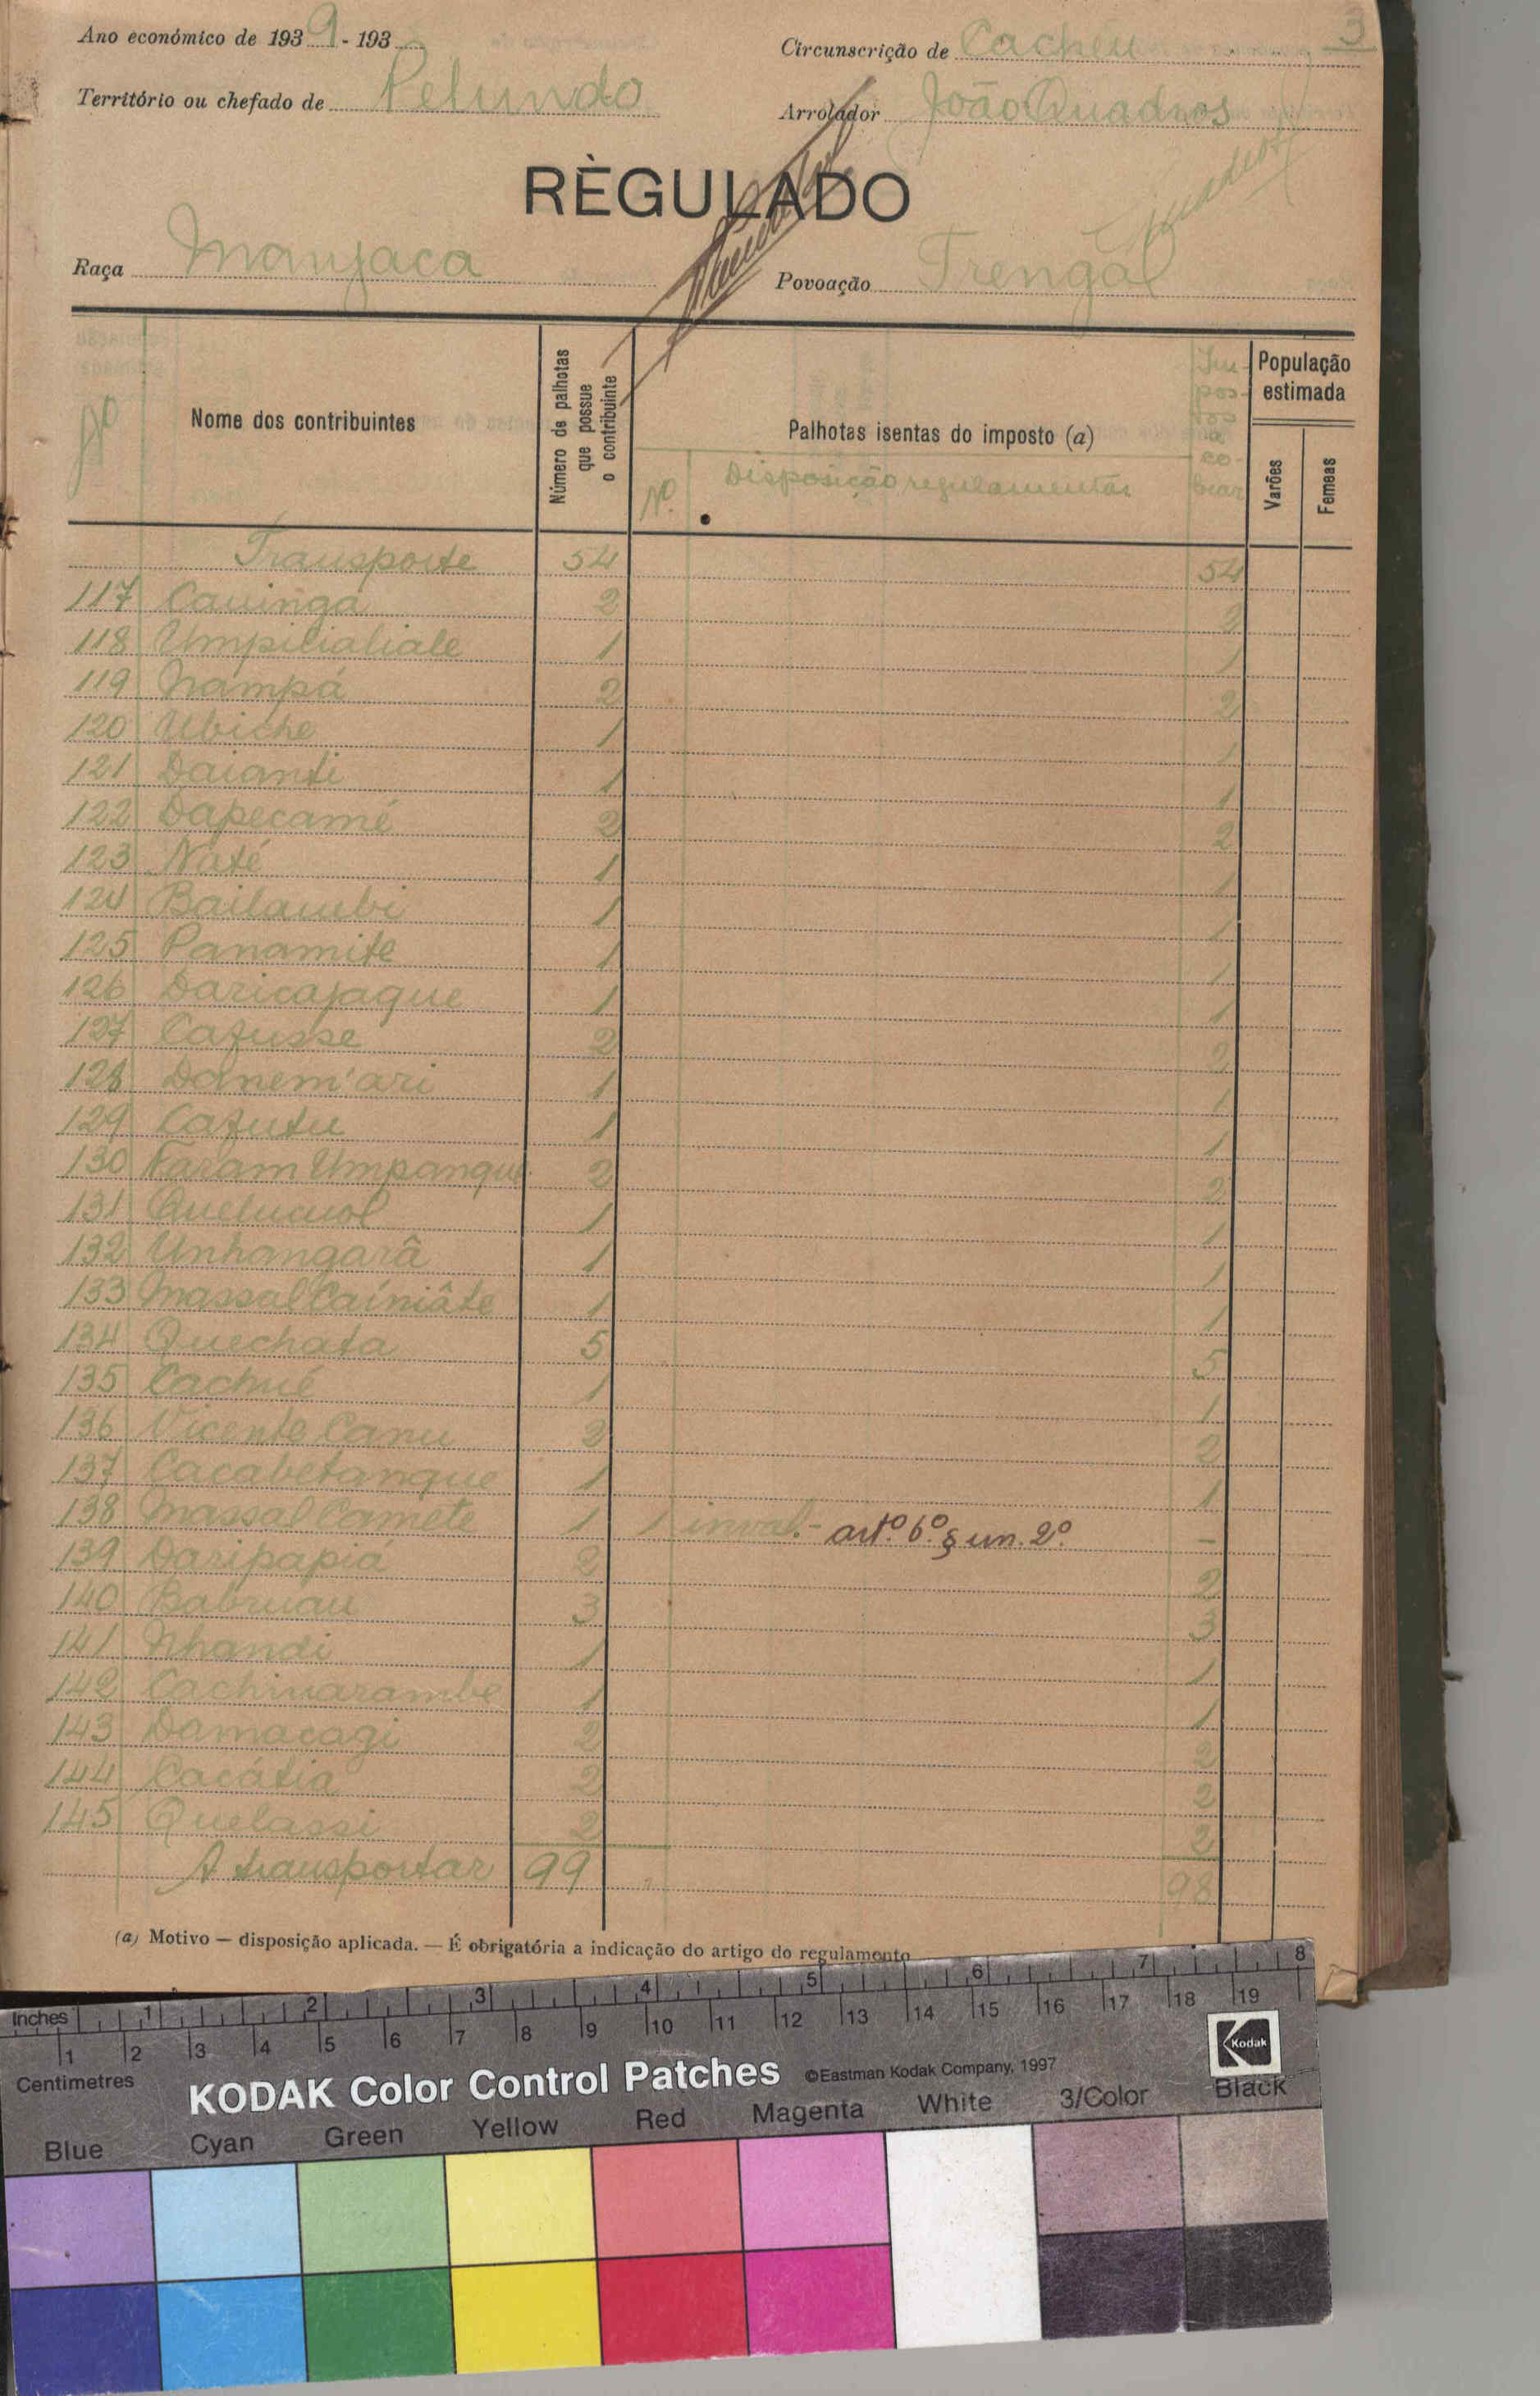 3
Ano económico de 1939 - 193
Circunscrição de Cacheu
Território ou chefado de Pelundo
Arrolador João Quadros
RÈGULADO
Quadros
Raça Manjaca
Povoação Trengal
Nº
Nome dos contribuintes
Número de palhotas que possue o contribuinte
Palhotas isentas do imposto (a)
Nº. Disposição regulamentar
Impostos a cobrar
População estimada
Varões
Femeas
Transporte 54 54
117 Cauinga 2 2
118 Umpilialiale 1 1
119 Nampá 2 2
120 Ubiche 1 1
121 Daianti 1 1
122 Dapecamé 2 2
123 Naté 1 1
124 Bailambi 1 1
125 Panamite 1 1
126 Daricajaque 1 1
127 Cafusse 2 2
128 Danem'ari 1 1
129 Cafutu 1 1
130 Faram Umpanque 2 2
131 Quelucuol 1 1
132 Unhangarâ 1 1
133 Massal Cainiâte 1 1
134 Quechata 5 5
135 Cachué 1 1
136 Vicente Canu 2 2
137 Cacabetanque 1 1
138 Massal Camete 1 1 inval. - artº. 6º. § un. 2º -
139 Daripapiá 2 2
140 Babruau 3 3
141 Nhandi 1 1
142 Cachinarambe 1 1
143 Damacagi 2 2
144 Cacátia 2 2
145 Quelassi 2 2
A transportar 99 98
(a) Motivo — disposição aplicada. — É obrigatória a indicação do artigo do regulamento
Inches 1 2 3 4 5 6 7 8
Centimetres 1 2 3 4 5 6 7 8 9 10 11 12 13 14 15 16 17 18 19
KODAK Color Control Patches ©Eastman Kodak Company, 1997
Kodak
Blue Cyan Green Yellow Red Magenta White 3/Color Black